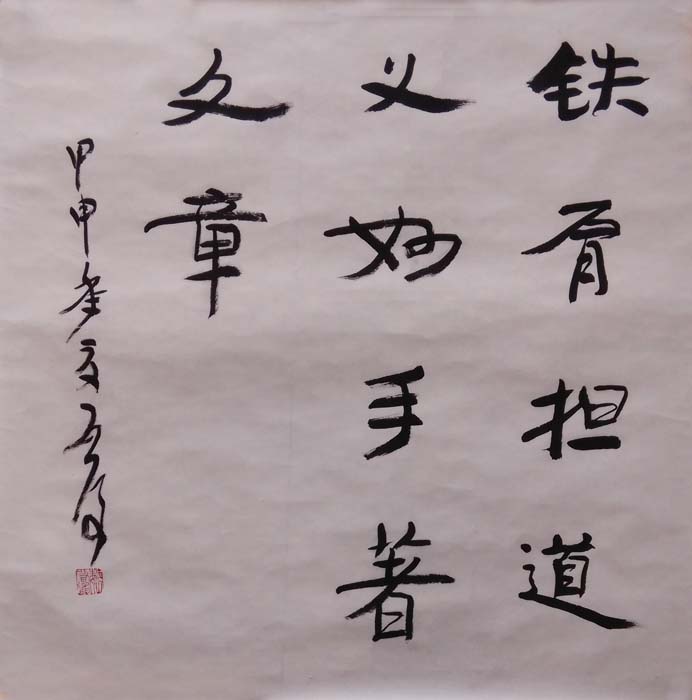 铁肩担道
义妙手著
文章
甲申年夏